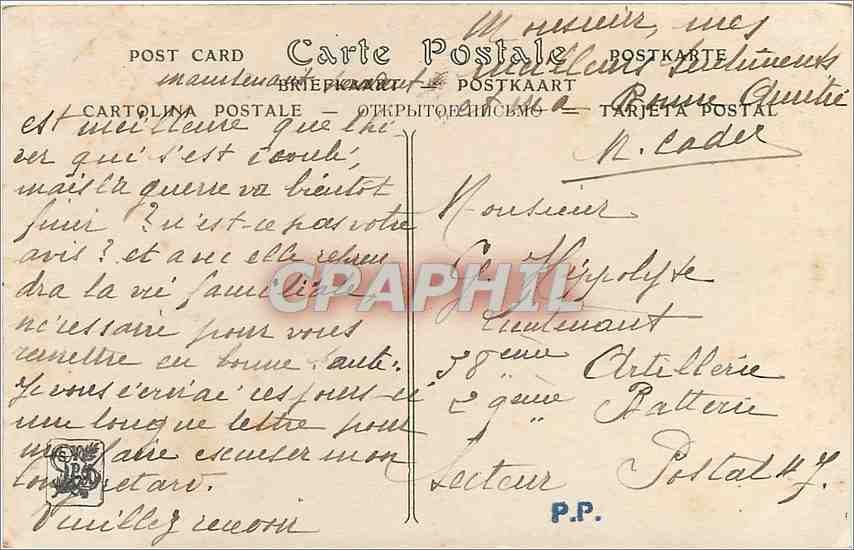 POST CARD Carte Postale POSTKARTE
BRIEFKAART — POSTKAART
CARTOLINA POSTALE — ОТКРЫТОЕ ПИСЬМО — TARJETA POSTAL
maintenant
est meilleure que l'hi
ver qui s'est écoulé,
mais la guerre va bientôt
finir ? n'est-ce pas votre
avis ? et avec elle revien
dra la vie familiale,
nécessaire pour vous
remettre en bonne santé.
Je vous écrirai ces jours-ci
une longue lettre pour
me faire excuser mon
long retard.
Veuillez recevoir
Monsieur, mes
meilleurs sentiments
Bonne Amitié
N. Cader
Monsieur
G. Hippolyte
Lieutenant
38ème Artillerie
29ème Batterie
Secteur Postal 47.
P.P.
CPAPHIL